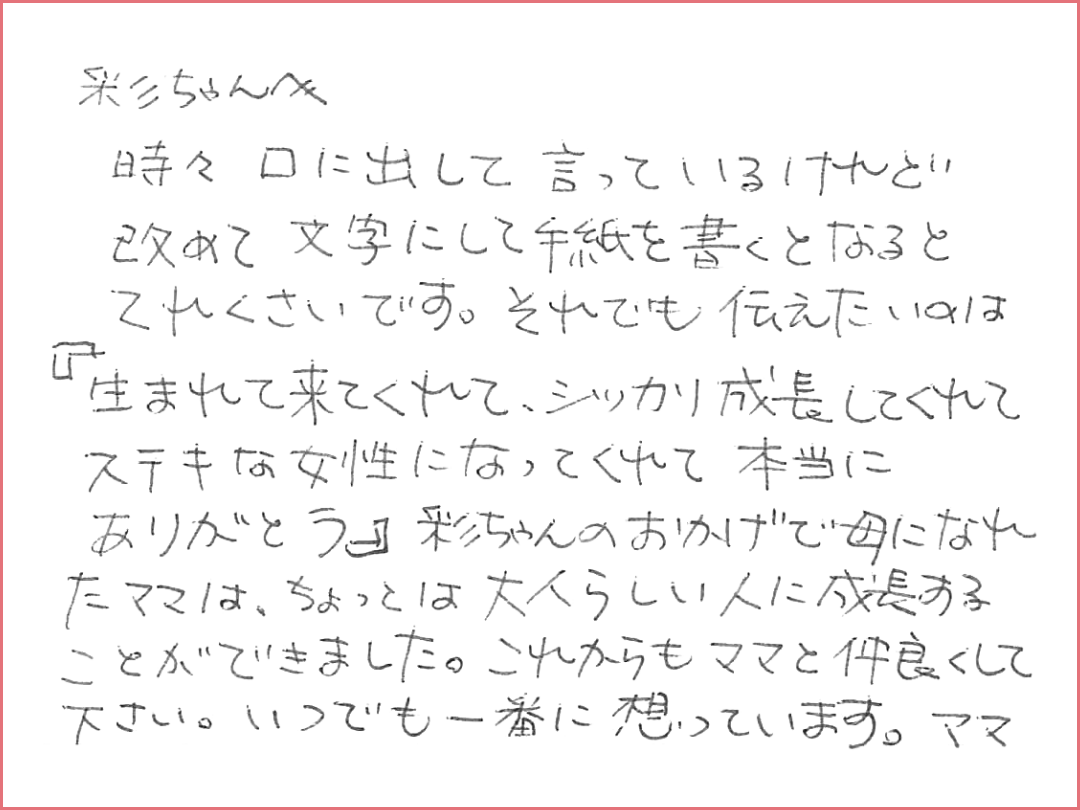 彩ちゃんへ
時々 口に出して 言っているけれど
改めて 文字にして手紙を書くとなると
てれくさいです。それでも 伝えたいのは
『生まれて来てくれて、シッカリ成長してくれて
ステキな女性になってくれて 本当に
ありがとう』彩ちゃんのおかげで母になれ
たママは、ちょっとは大人らしい人に成長する
ことができました。これからもママと仲良くして
下さい。いつでも一番に想っています。ママ